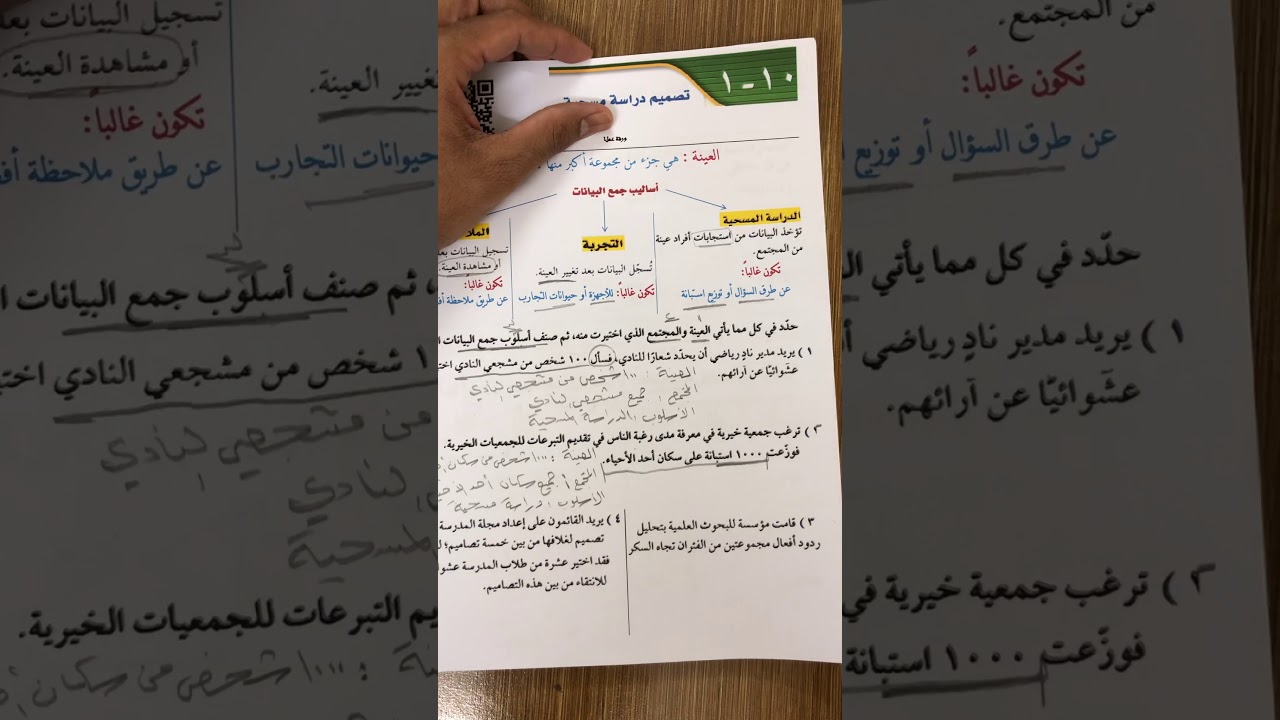 ١-١٠
تصميم دراسة مسحية
ورقة عمل
العينة : هي جزء من مجموعة أكبر منها
أساليب جمع البيانات
الدراسة المسحية
تؤخذ البيانات من استجابات أفراد عينة
من المجتمع.
تكون غالباً:
عن طرق السؤال أو توزيع استبانة
التجربة
تُسجّل البيانات بعد تغيير العينة.
تكون غالباً: للأجهزة أو حيوانات التجارب
الملا
تسجيل البيانات بعد
أو مشاهدة العينة.
تكون غالباً:
عن طريق ملاحظة أف
حدّد في كل مما يأتي العينة والمجتمع الذي اختيرت منه، ثم صنف أسلوب جمع البيانات ا
١ ) يريد مدير نادٍ رياضي أن يحدّد شعارًا للنادي، فسأل ١٠٠ شخص من مشجعي النادي اختي
عشوائيًا عن آرائهم.
العينة : ١٠٠ شخص من مشجعي النادي
المجتمع : جميع مشجعي النادي
الاسلوب : الدراسة المسحية
٢ ) ترغب جمعية خيرية في معرفة مدى رغبة الناس في تقديم التبرعات للجمعيات الخيرية.
فوزّعت ١٠٠٠ استبانة على سكان أحد الأحياء.
العينة : ١٠٠٠ شخص من سكان
المجتمع : جميع سكان أحد الأحياء
الاسلوب : دراسة مسحية
٣ ) قامت مؤسسة للبحوث العلمية بتحليل
ردود أفعال مجموعتين من الفئران تجاه السكر
٤ ) يريد القائمون على إعداد مجلة المدرسة
تصميم لغلافها من بين خمسة تصاميم؛ ل
فقد اختير عشرة من طلاب المدرسة عشوا
للانتقاء من بين هذه التصاميم.